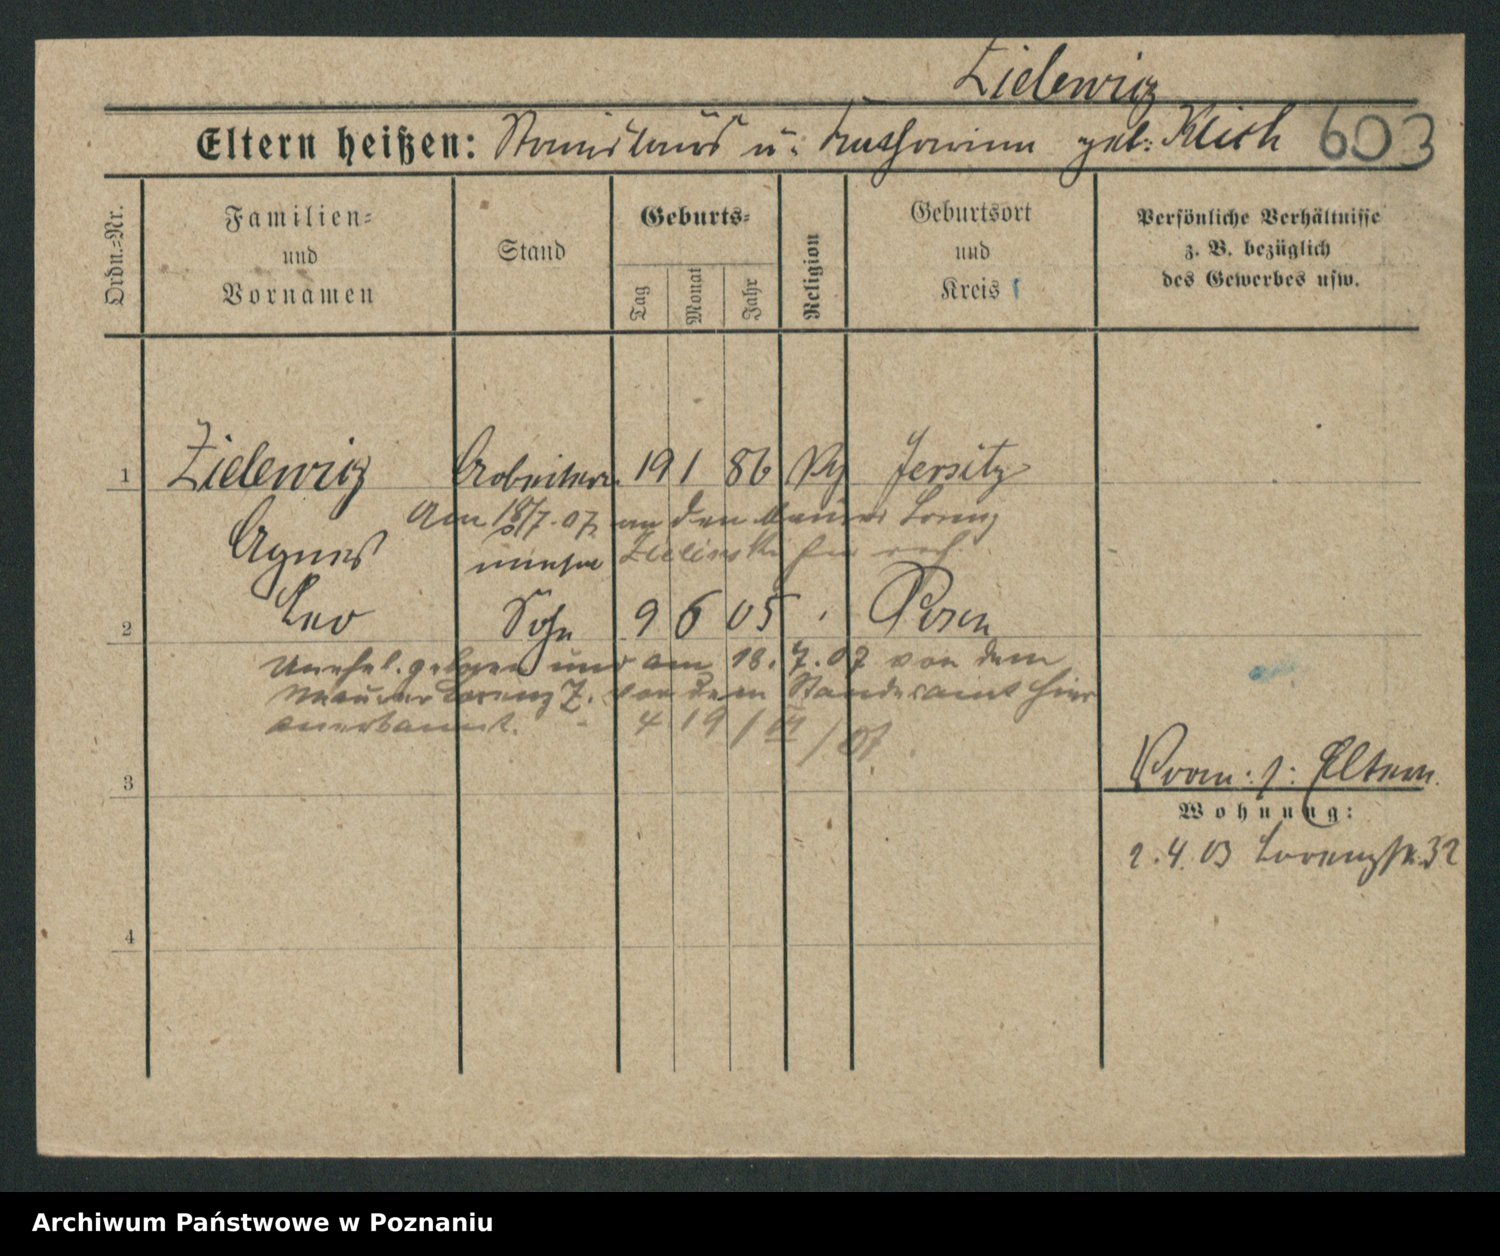 Zielewicz
Eltern heißen: Stanislaus u. Katharina geb. Klich 603
Ordn.-Nr.
Familien-
und
Vornamen
Stand
Geburts-
Tag
Monat
Jahr
Religion
Geburtsort
und
Kreis
Persönliche Verhältnisse
z. B. bezüglich
des Gewerbes usw.
1 Zielewicz Arbeiterin 19 1 86 Jersitz
Am 18/7.07 an den Maurer Lorenz
Agnes Zielinski
2 Leo Sohn 9 6 05 Posen
Unehel. geboren und am 18.7.07 von dem
Maurer Lorenz Z. vor dem Standesamt hier
anerkannt. 19/VII/07
3
Eltern
Wohnung:
2.4.03 Lorenzstr. 32
4
Archiwum Państwowe w Poznaniu